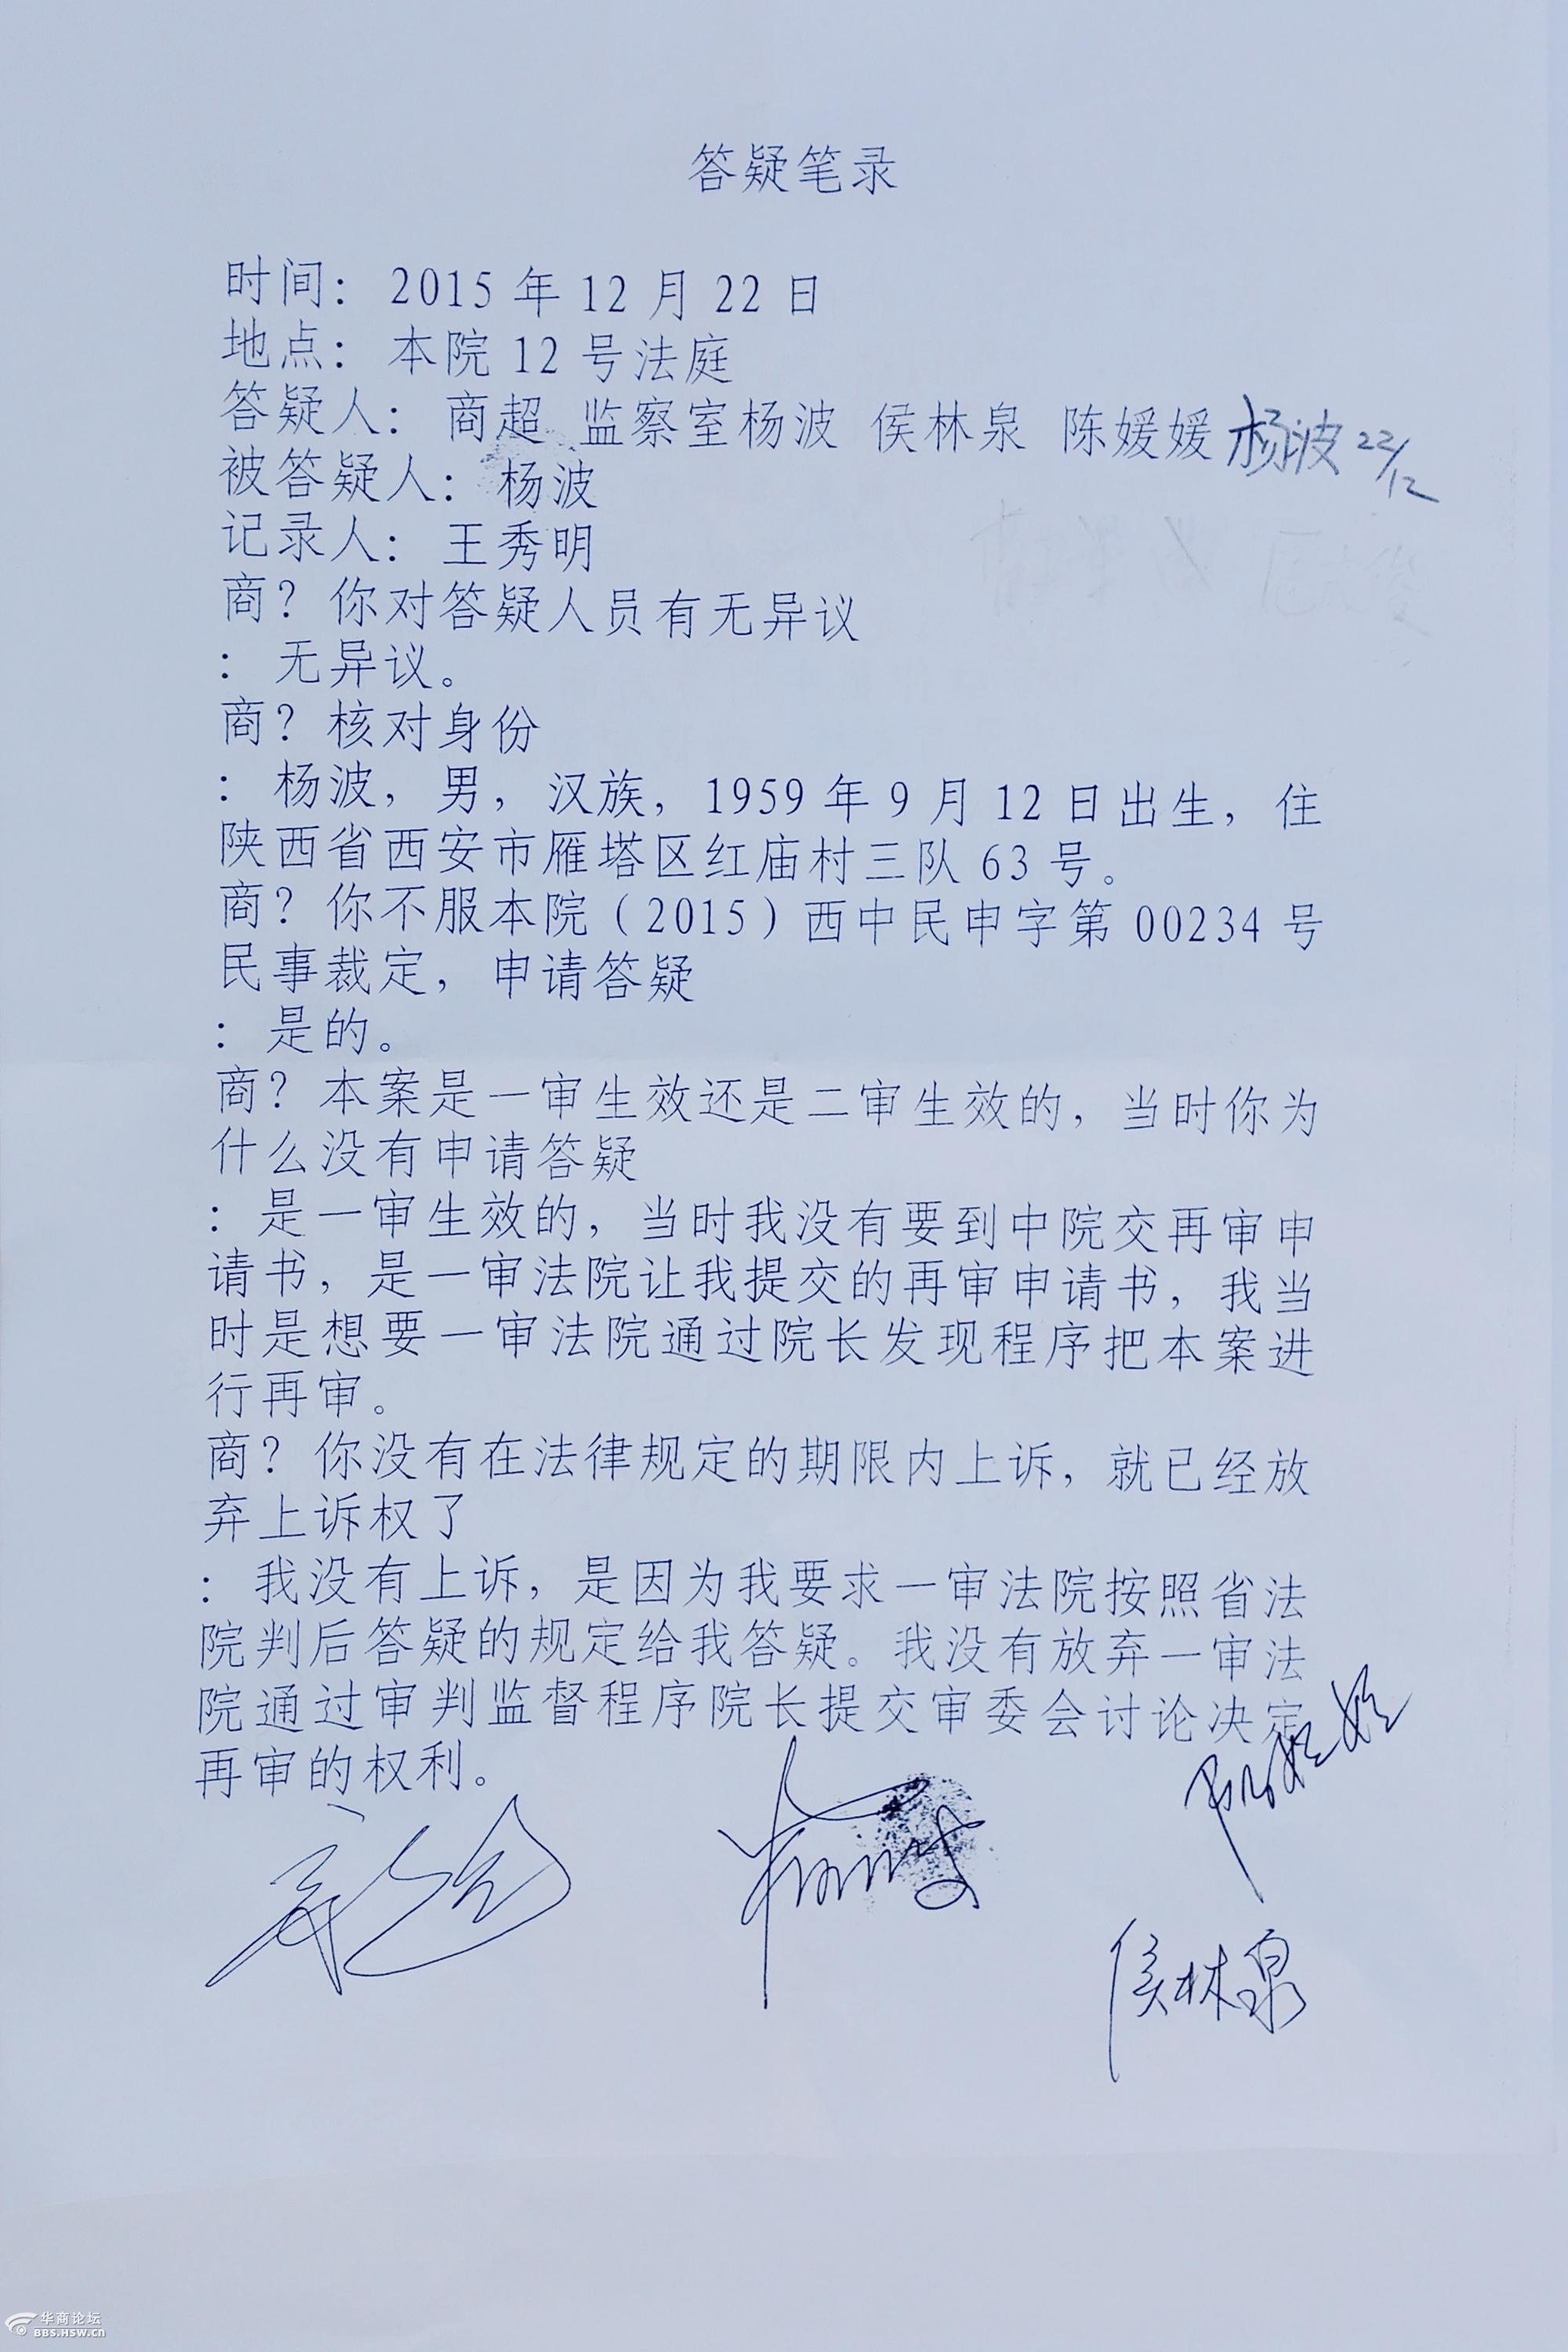 答疑笔录
时间：2015 年 12 月 22 日
地点：本院 12 号法庭
答疑人：商超 监察室杨波 侯林泉 陈媛媛 杨波 22/12
被答疑人：杨波
记录人：王秀明
商？你对答疑人员有无异议
：无异议。
商？核对身份
：杨波，男，汉族，1959 年 9 月 12 日出生，住
陕西省西安市雁塔区红庙村三队 63 号。
商？你不服本院（2015）西中民申字第 00234 号
民事裁定，申请答疑
：是的。
商？本案是一审生效还是二审生效的，当时你为
什么没有申请答疑
：是一审生效的，当时我没有要到中院交再审申
请书，是一审法院让我提交的再审申请书，我当
时是想要一审法院通过院长发现程序把本案进
行再审。
商？你没有在法律规定的期限内上诉，就已经放
弃上诉权了
：我没有上诉，是因为我要求一审法院按照省法
院判后答疑的规定给我答疑。我没有放弃一审法
院通过审判监督程序院长提交审委会讨论决定
再审的权利。
陈媛媛
侯林泉
华商论坛
BBS.HSW.CN